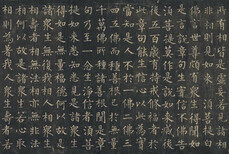 所有相皆是虛妄若見諸相
非相則見如來須菩提白
佛言世尊頗有眾生得聞如
是言說章句生實信不佛告
須菩提莫作是說如來滅後
後五百歲有持戒修福者於
此章句能生信心以此為實
當知是人不於一佛二佛三
四五佛而種善根已於無量
千萬佛所種諸善根聞是章
句乃至一念生淨信者須菩
提如來悉知悉見是諸眾生
得如是無量福德何以故是
諸眾生無復我相人相眾生
相壽者相無法相亦無非法
相何以故是諸眾生若心取
相則為著我人眾生壽者若